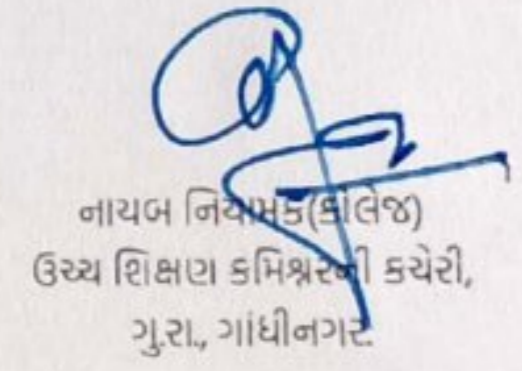 નાયબ નિયામક(કોલેજ)
ઉચ્ચ શિક્ષણ કમિશ્નરની કચેરી,
ગુ.રા., ગાંધીનગર.